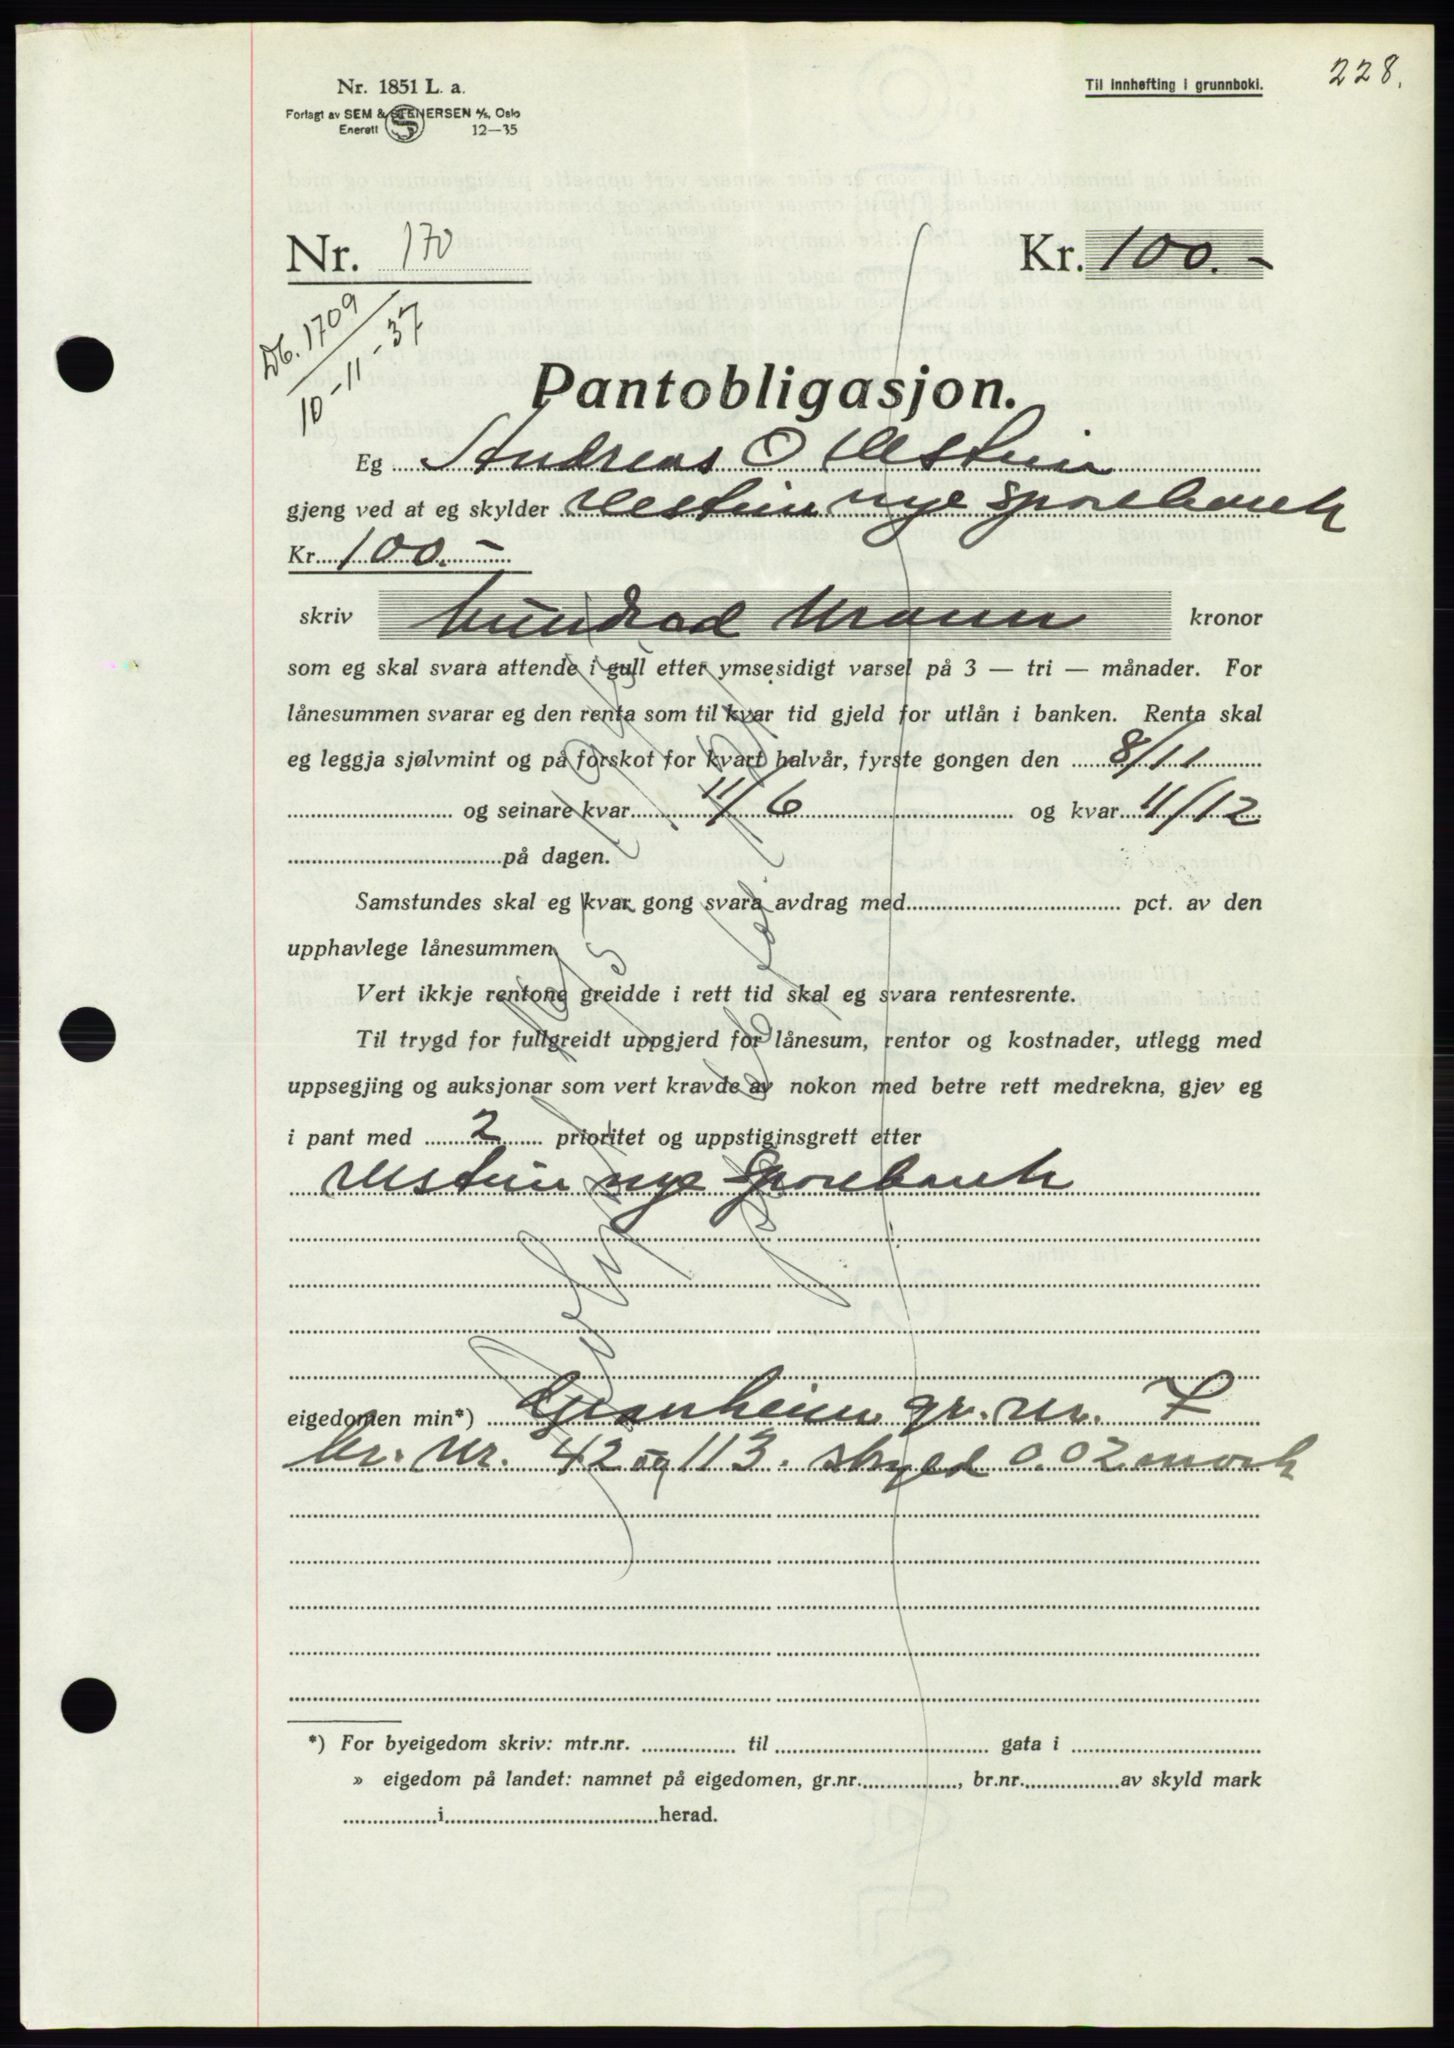 228.
Nr. 1851 L. a.
Til innhefting i grunnboki.
Forlagt av SEM & STENERSEN A/S, Oslo
Enerett 12—35
Nr. 170
Kr. 100.-
Db. 1709
10-11-37
Pantobligasjon.
Eg Andreas O Ulstein
gjeng ved at eg skylder Ulstein nye Sparebank
Kr. 100.-
skriv hundrad kronor
som eg skal svara attende i gull etter ymsesidigt varsel på 3 — tri — månader. For
lånesummen svarar eg den renta som til kvar tid gjeld for utlån i banken. Renta skal
eg leggja sjølvmint og på forskot for kvart halvår, fyrste gongen den 8/11
og seinare kvar 11/6 og kvar 11/12
på dagen.
Samstundes skal eg kvar gong svara avdrag med pct. av den
upphavlege lånesummen
Vert ikkje rentone greidde i rett tid skal eg svara rentesrente.
Til trygd for fullgreidt uppgjerd for lånesum, rentor og kostnader, utlegg med
uppsegjing og auksjonar som vert kravde av nokon med betre rett medrekna, gjev eg
i pant med 2 prioritet og uppstiginsgrett etter
Ulstein nye Sparebank
eigedomen min*) Granheim gr. nr. 7
br. nr. 42 og 113. skyld 0.02 mark
*) For byeigedom skriv: mtr.nr. til gata i
» eigedom på landet: namnet på eigedomen, gr.nr. , br.nr. av skyld mark
i herad.